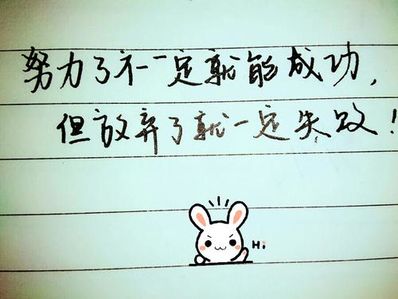 努力了不一定就能成功,
但放弃了就一定失败!
Hi